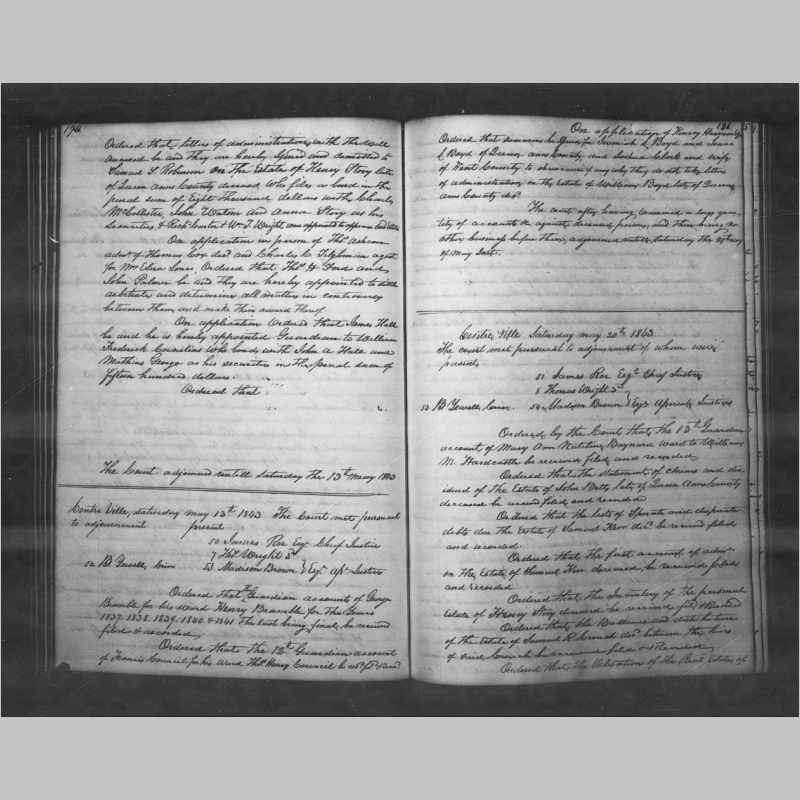 Ordered that letters of administration with the Will
annexed be and they are hereby and committed to
Samuel T Robinson on the Estate of Henry Story late
of Queen Anns County deceased who files a bond in the
penal sum of Eight thousand dollars with Charles
McCollister, John Watson and Anna Story as his
Securities & Wm T. Wright was appointed to
On application in person of Thos
admr of Thomas Cox decd and Charles C Tilghman agent
for Mrs Ellen Ordered that Thos H Ford and
John Palmer be and they are hereby appointed to settle
arbitrate and determine all matters in controversy
between them and make their award thereof
On application Ordered that James Hall
be and he is hereby appointed Guardian to William
Frederick who bonds with John A Hall and
Mathias George as his securities in the penal sum of
fifteen hundred dollars
Ordered that
The Court adjourned untill Saturday the 13th may 1843
Centre Ville, saturday may 13th 1843 The Court met pursuant
to adjournment present
50 James Roe Esqr Chief Justice
7 Thos Wright 3d
52 B Crier 53 Madison Brown } Esqrs Justices
Ordered that the Guardian accounts of George
Bramble for his ward Henry Bramble for the years
1837. 1838. 1839. 1840 & 1841 the last being final be received
filed & recorded
Ordered that the 12th Guardian account
of Francis Council for his ward Thos Henry Council be
On application of Henry
Ordered that summons be for Jeremiah L Boyd and
L Boyd of Queen anns County and Joshua Clark and wife
of Kent County to shew cause if any why they do not take letters
of administration on the Estate of William Boyd late of Queen
Anns County decd
The court after having examined a large quan-
tity of accounts &c against deceased persons, and there being no
other business before them, adjourned untill Saturday the 20th day
of may Inst.
Centre Ville Saturday may 20th 1843
The court met pursuant to adjournment of whom were
present
51 James Roe Esqr Chief Justice
8 Thomas Wright 3d
53 B Crier. 54 Madison Brown } Esqs Justices
Ordered by the Court that the 13th Guardian
account of Mary Ann Baynard ward to William
M. Hardcastle be received filed and recorded
Ordered that the statement of claims and div-
idend of the Estate of John late of Queen Anns County
deceased be received filed and recorded
Ordered that the lists of Sperate and desperate
debts due the Estate of Samuel Kerr decd be received filed
and recorded.
Ordered that the first account of admn
on the Estate of Samuel Kerr deceased be received filed
and recorded
Ordered that the Inventory of the personal
Estate of Henry Story deceased be received filed & Recorded
Ordered that the Ballance and distribution
of the Estate of Samuel R decd between the heirs
of said be received filed & Recorded
Ordered that the Valuation of the Real Estate of